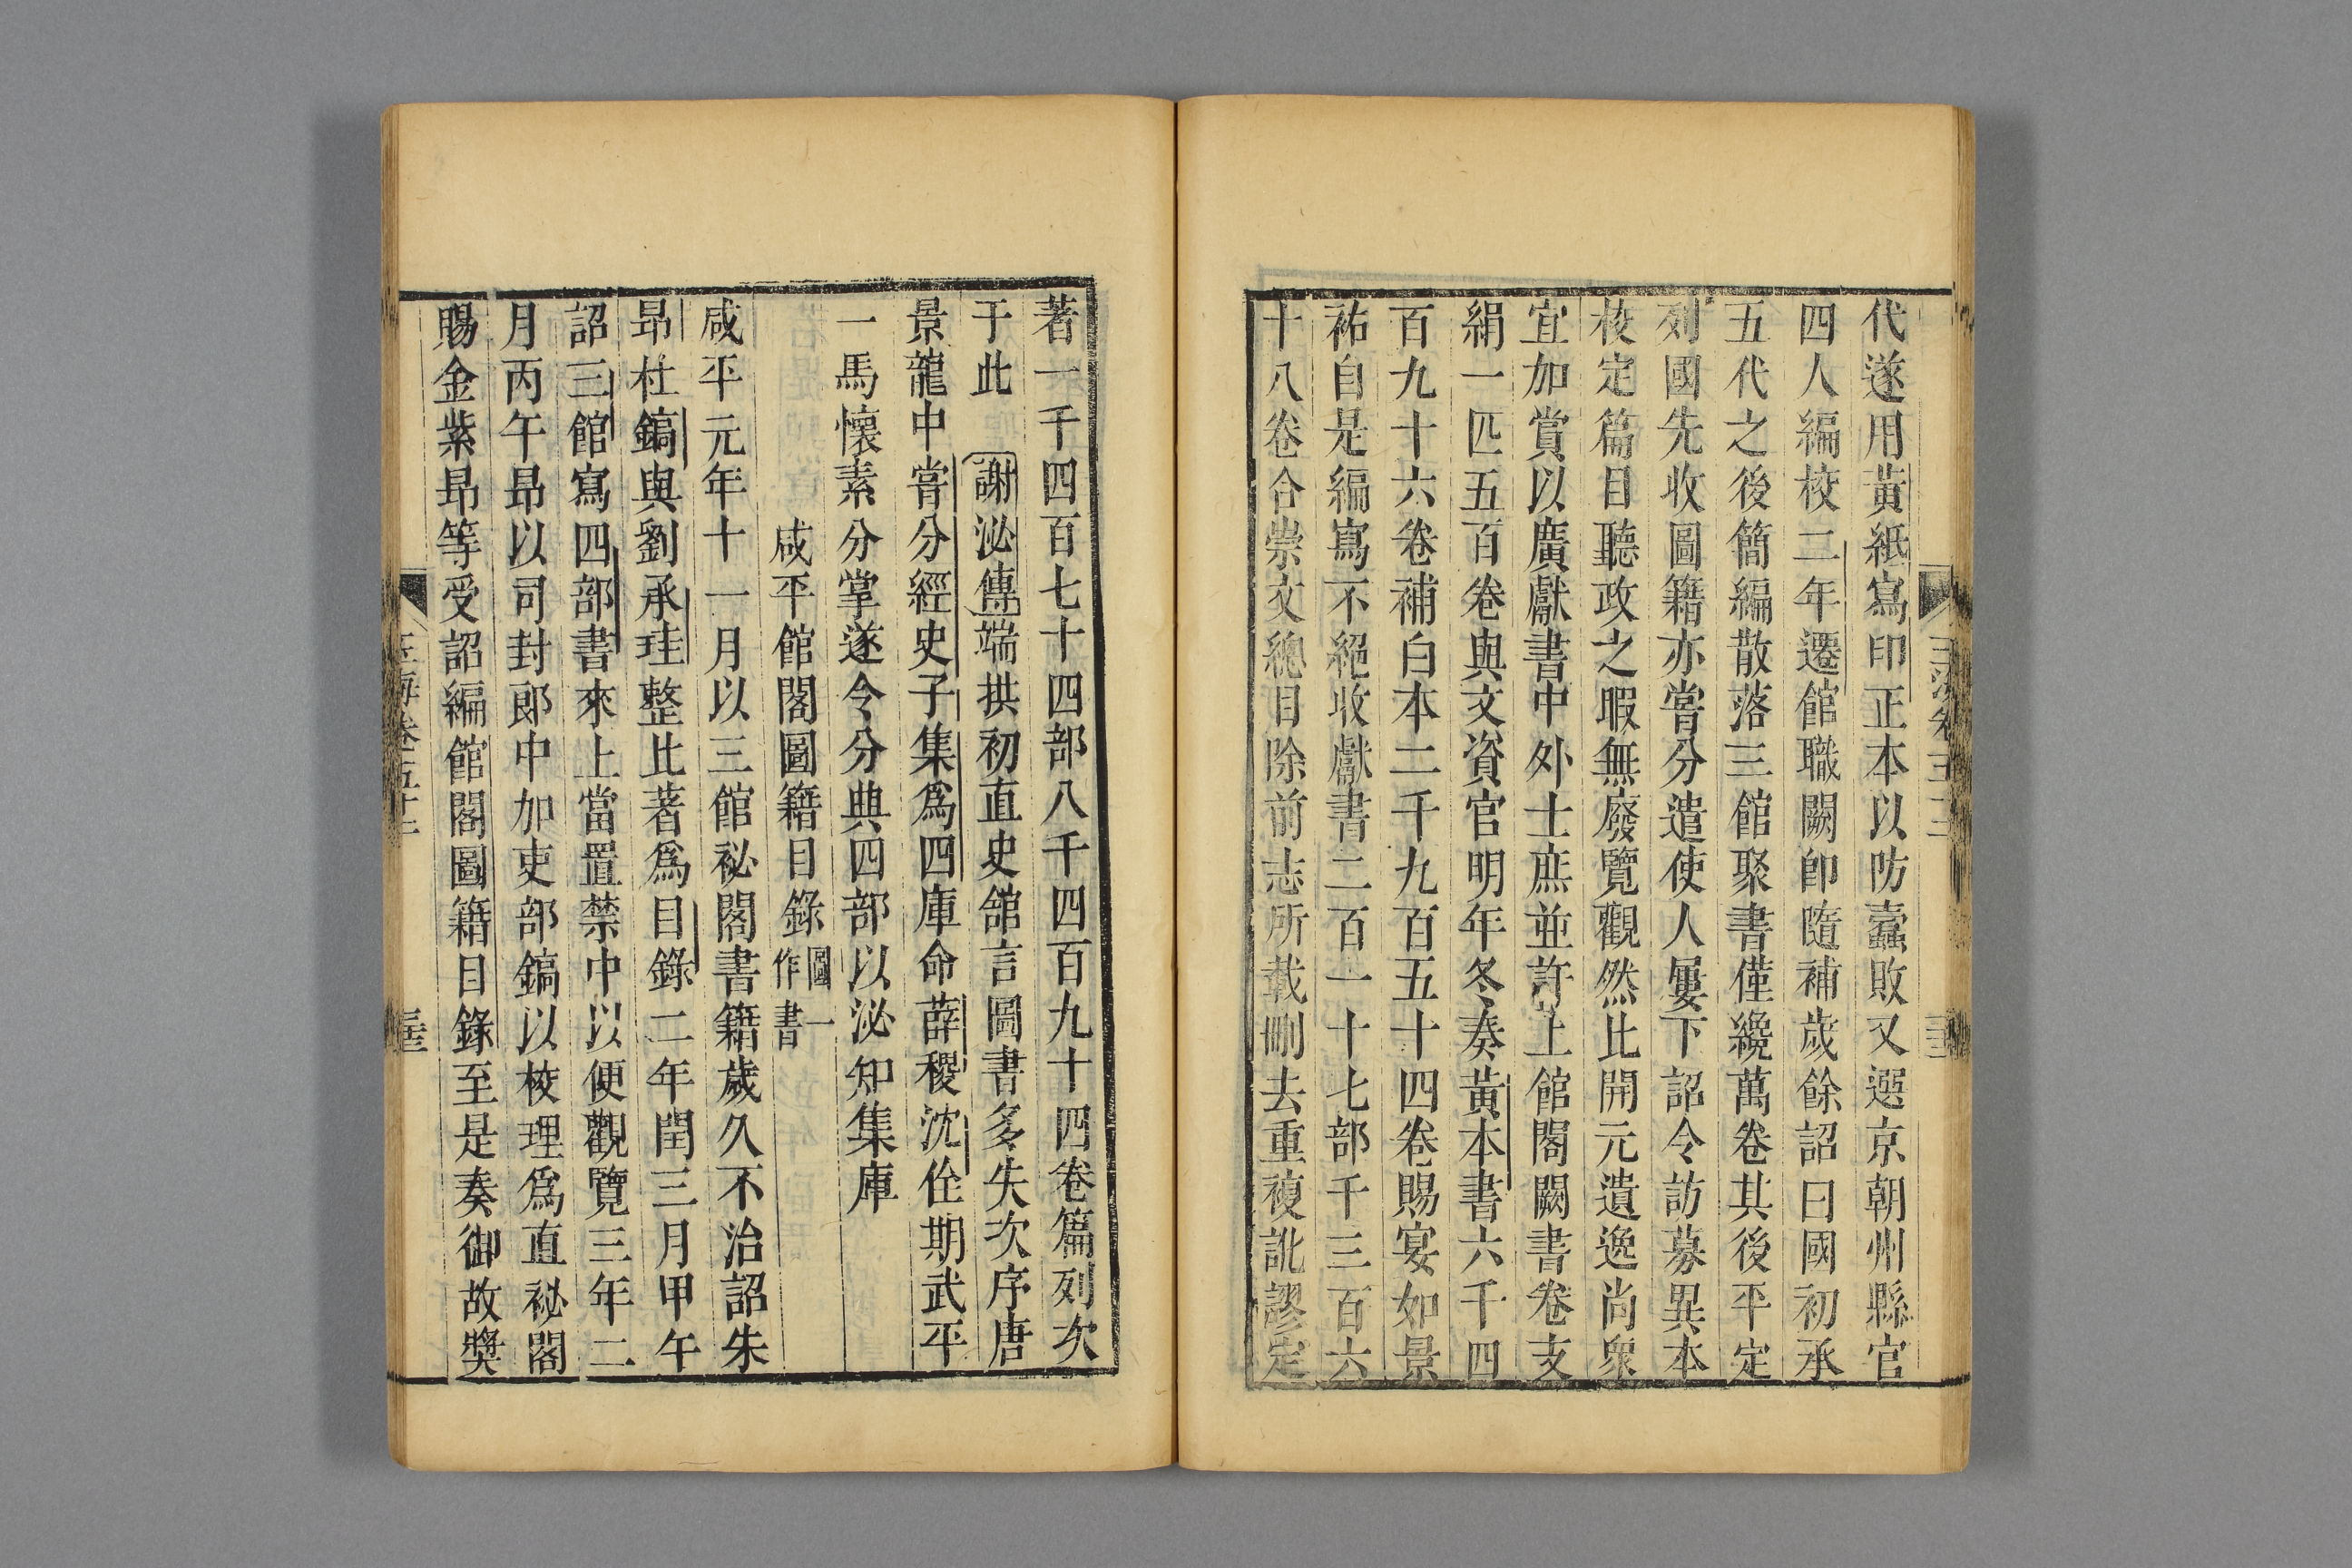 代遂用黃紙寫印正本以防蠹敗又選京朝州縣官
四人編校二年遷館職闕即隨補歲餘詔曰國初承
五代之後簡編散落三館聚書僅纔萬卷其後平定
列國先收圖籍亦嘗分遣使人屢下詔令訪募異本
校定篇目聽政之暇無廢覽觀然比開元遺逸尚衆
宜加賞以廣獻書中外士庶並許上館閣闕書卷支
絹一匹五百卷與文資官明年冬奏黃本書六千四
百九十六卷補白本二千九百五十四卷賜宴如景
祐自是編寫不絕收獻書二百一十七部千三百六
十八卷合崇文總目除前志所載刪去重複訛謬定
著一千四百七十四部八千四百九十四卷篇列次
于此 謝泌傳端拱初直史館言圖書多失次序唐
景龍中嘗分經史子集爲四庫命薛稷沈佺期武平
一馬懷素分掌遂令分典四部以泌知集庫
咸平館閣圖籍目錄 圖一作書
咸平元年十一月以三館祕閣書籍歲久不治詔朱
昂杜鎬與劉承珪整比著爲目錄二年閏三月甲午
詔三館寫四部書來上當置禁中以便觀覽三年二
月丙午昂以司封郎中加吏部鎬以校理爲直祕閣
賜金紫昂等受詔編館閣圖籍目錄至是奏御故獎
玉海卷五十二